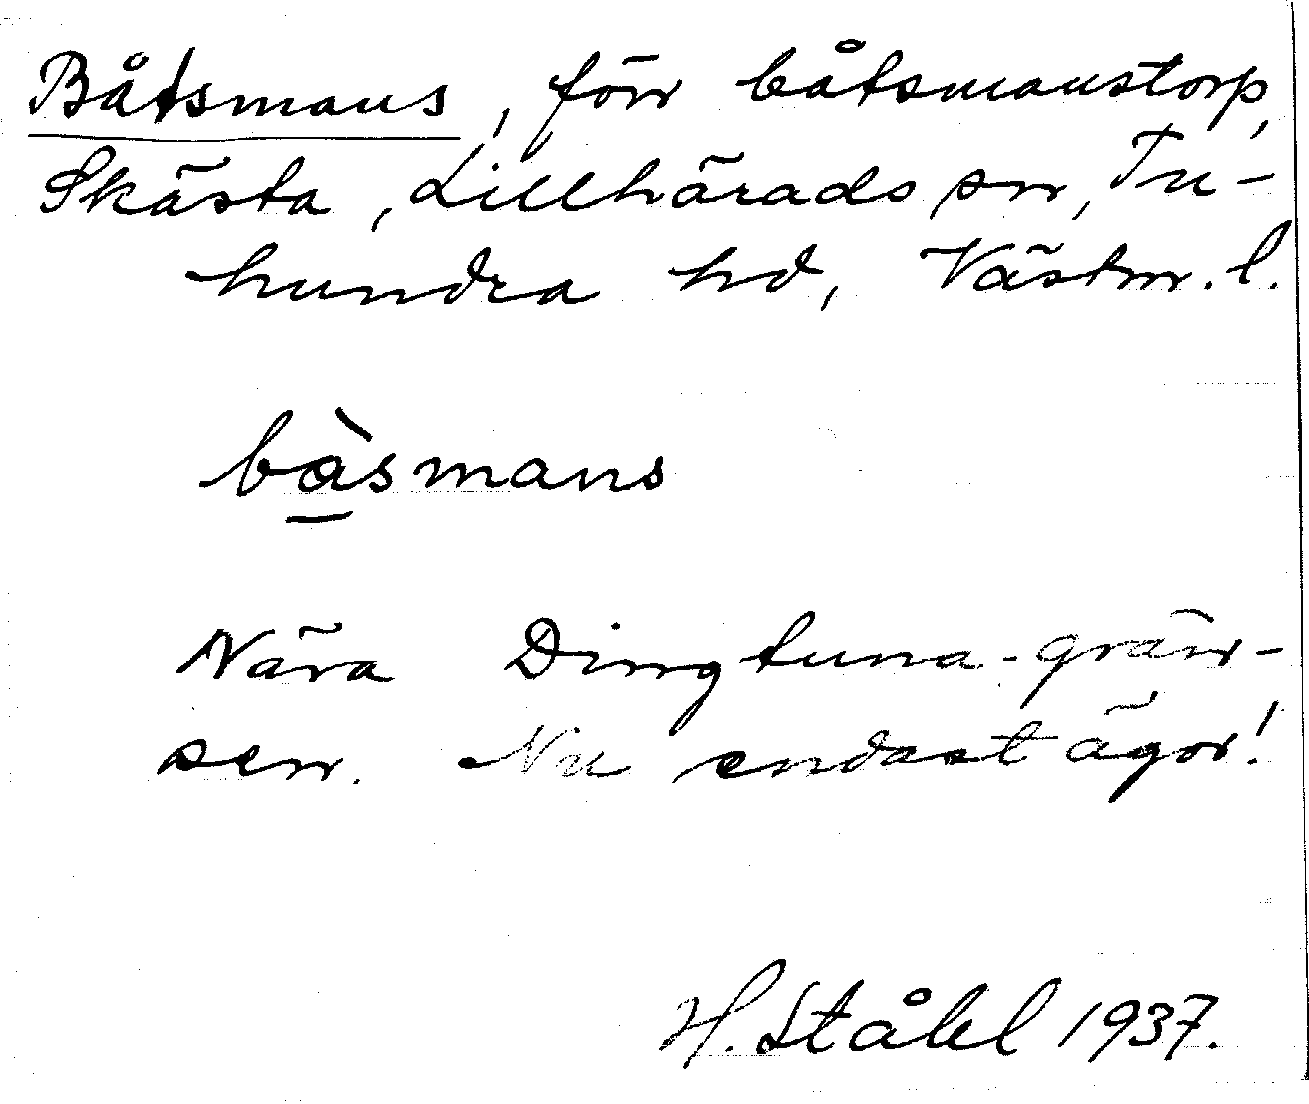 Båtsmans, förr båtsmanstorp,
Skästa, Lillhärads sn, Tu-
hundra hd, Västm. l.
bà̱smans
Nära Dingtuna-grän-
sen. Nu endast ägor!
H. Ståhl 1937.